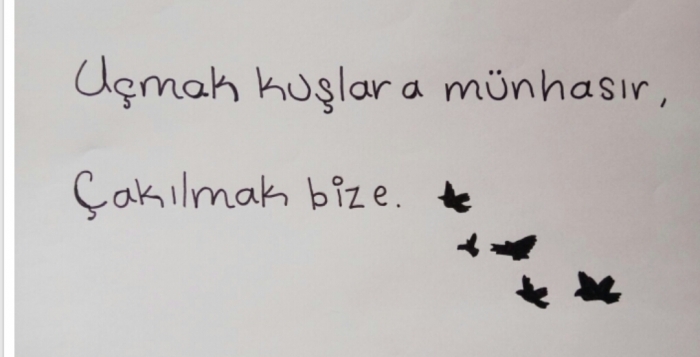 Uçmak kuşlara münhasır,
Çakılmak bize.